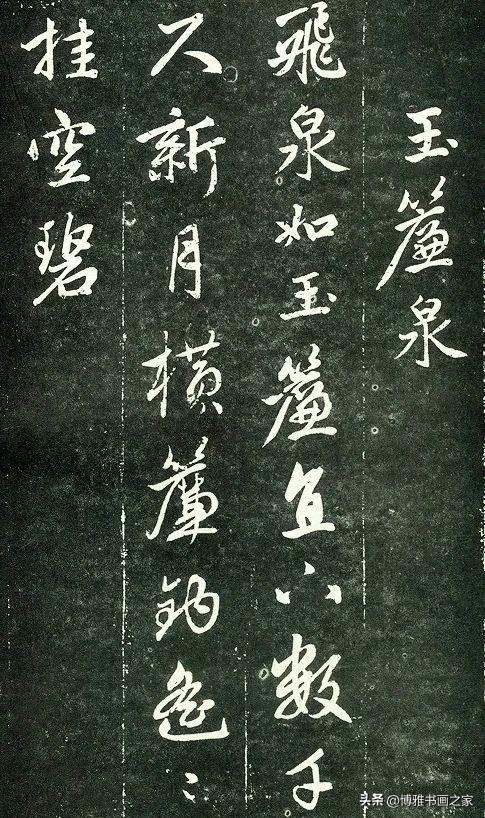 玉簾泉
飛泉如玉簾直下數千
尺新月橫簾鈎遙〻
挂空碧
头条 @博雅书画之家